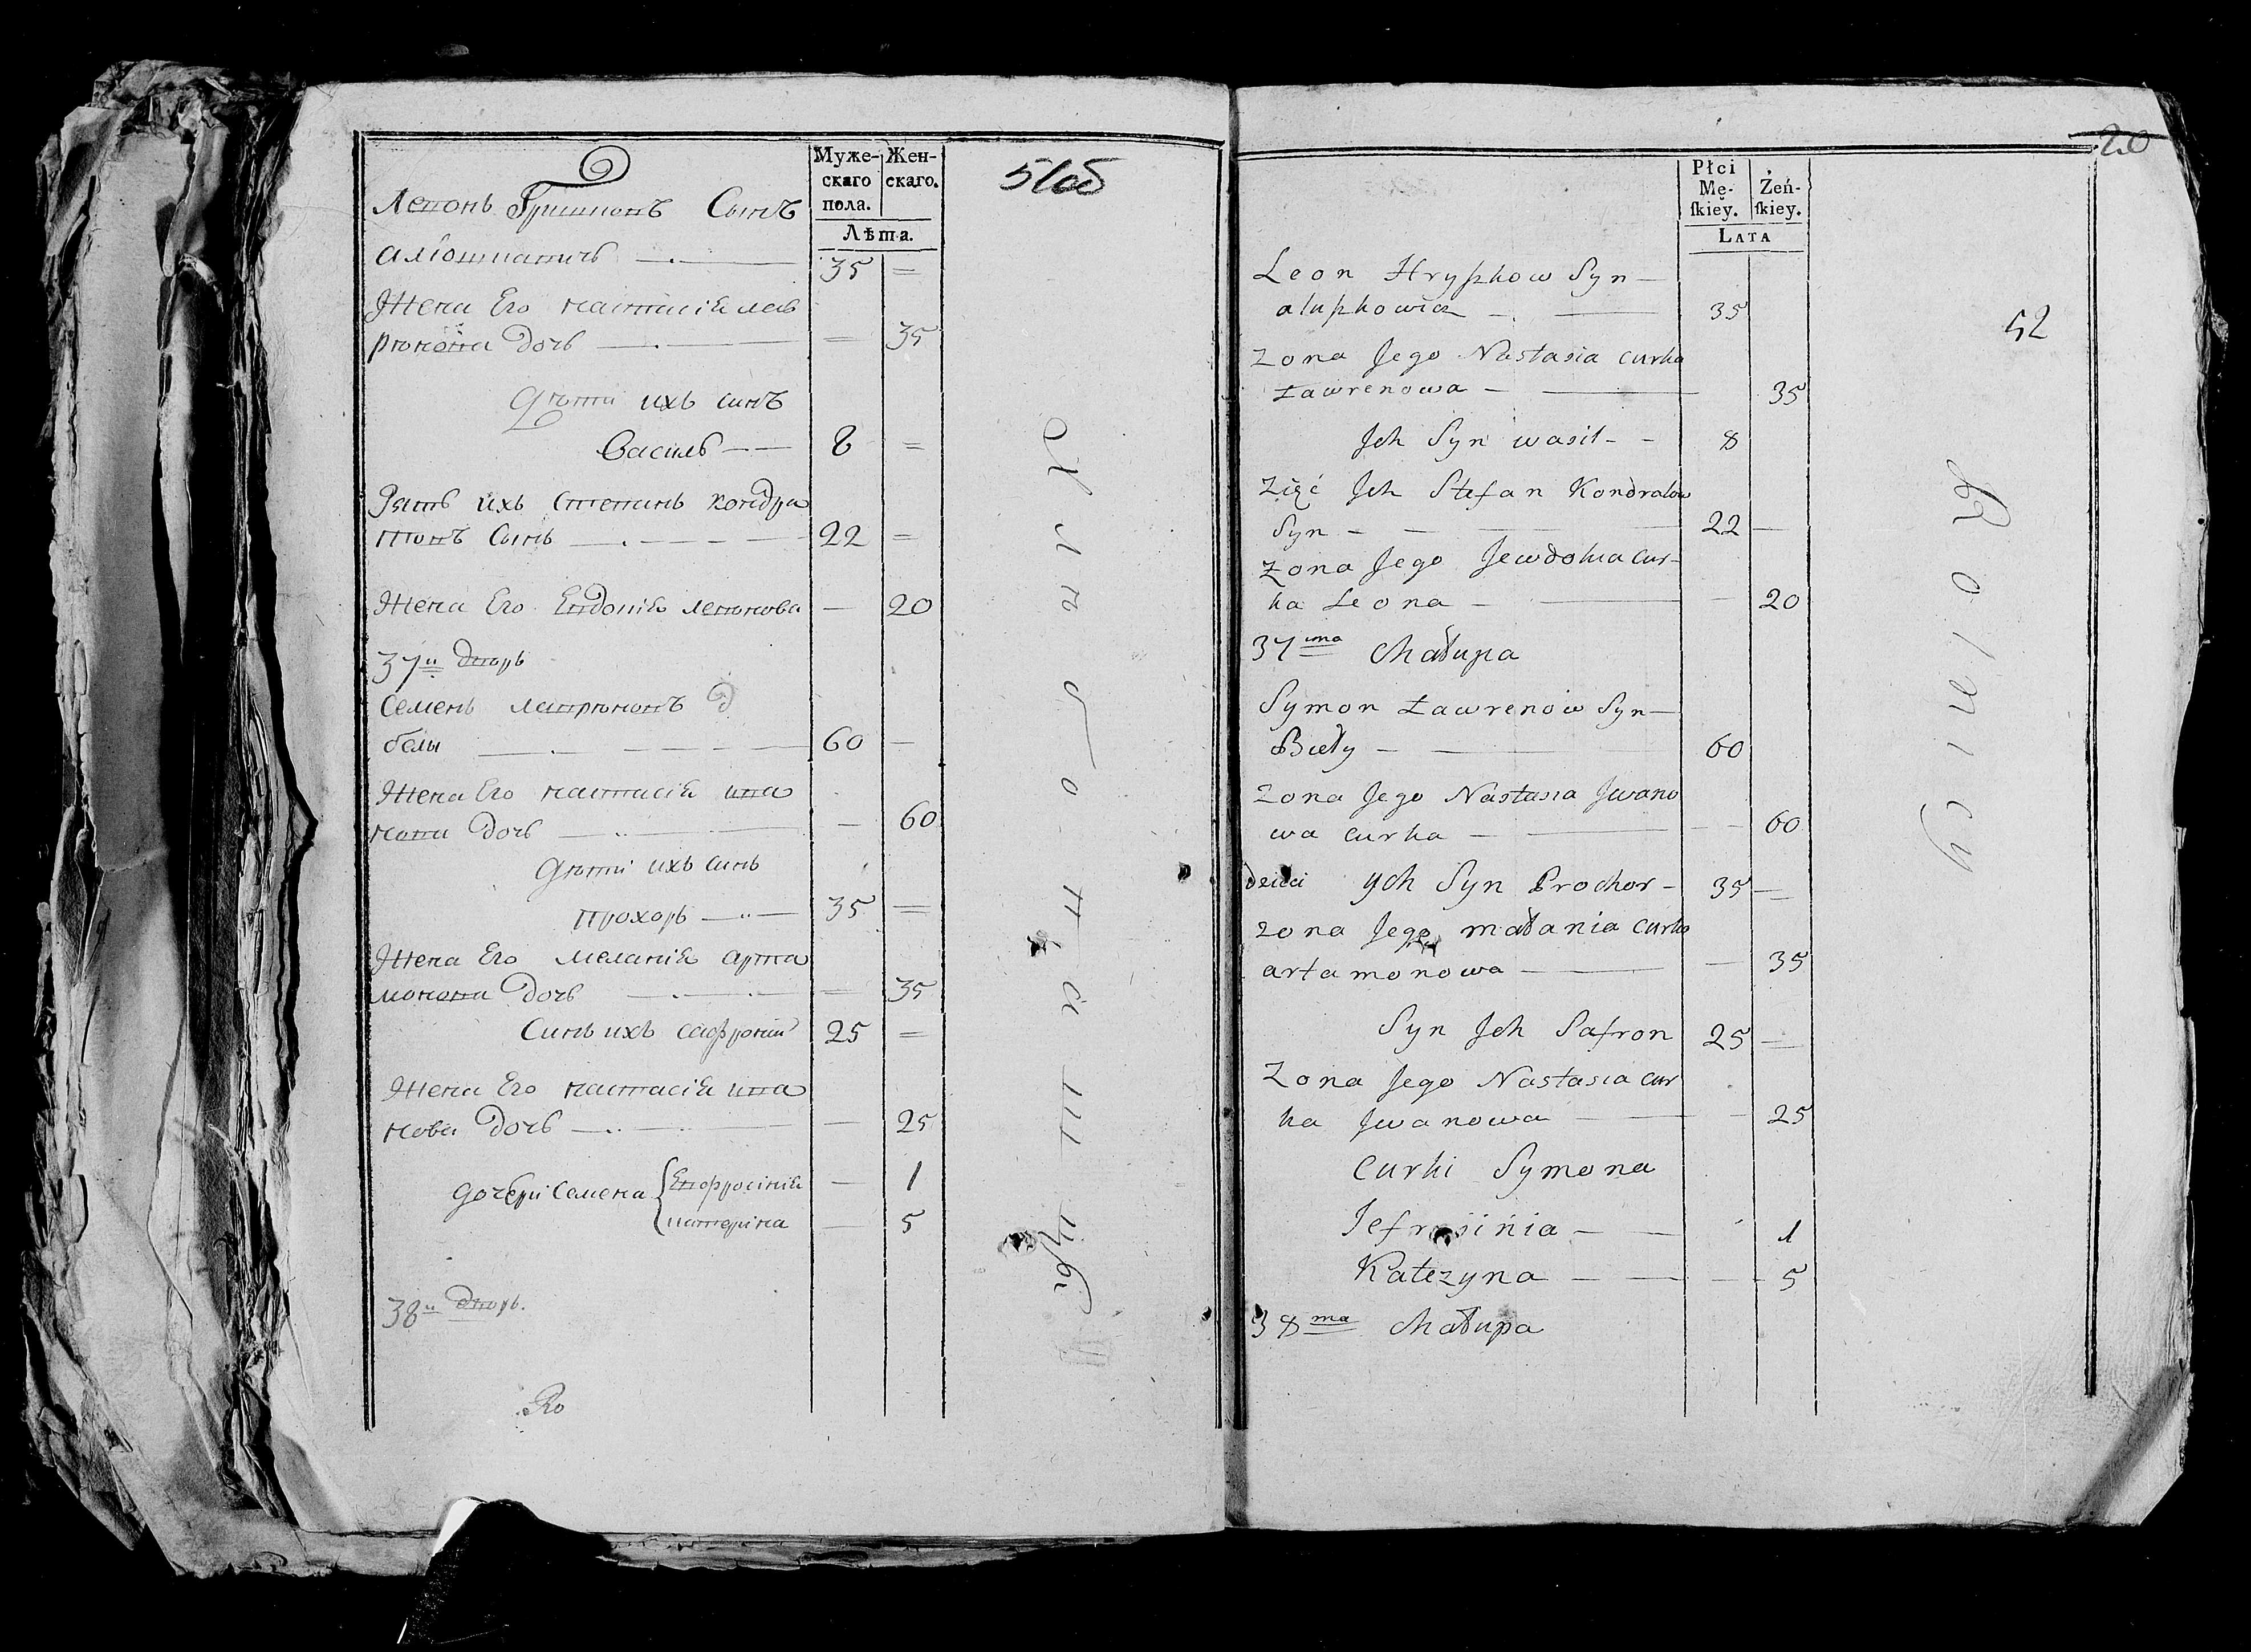 Муже-
скаго
пола.
Жен-
скаго.
Лѣта.
51об
Левонъ Гришковъ Сынъ
алюшкавичъ 35 =
Жена Его настасія лав
рѣнова дочь — 35
дѣти ихъ синъ
Василь — 8 =
Зять ихъ степанъ кондра
товъ Сынъ — 22 =
Жена Его Евдокія левонова — 20
37й дворъ
Семенъ лаврѣновъ
белы — 60 —
Жена Его настасія ива
нова дочь — 60
дѣти ихъ синъ
прохоръ — 35 =
Жена Его меланія арта
монова дочь — 35
Синъ ихъ сафроний 25 =
Жена Его настасія ива
нова дочь — 25
дочери Семена { Евфросінія — 1
катеріна — 5
38й дворъ.
20
52
Płci
Mę-
ſkiey.
Żeń-
ſkiey.
LATA
Leon Hryszkow Syn —
aluszkowicz — 35
Zona Jego Nastasia curka
Ławrenowa — 35
Jch Syn wasil - - 8
Zięć Jch Stefan Kondratow
Syn - — 22 —
Zona Jego Jewdokia cur-
ka Leona — 20
37ma Chałupa
Symon Ławrenow Syn —
Bieły — 60
Zona Jego Nastasia Jwano
wa curka — 60
dzieci ych Syn Prochor - 35 —
zona Jego małania curka
artamonowa — 35
Syn Jch Safron 25 —
Zona Jego Nastasia cur
ka Jwanowa — 25
Curki Symona
Jefrosinia — 1
Katezyna — 5
38ma Chałupa